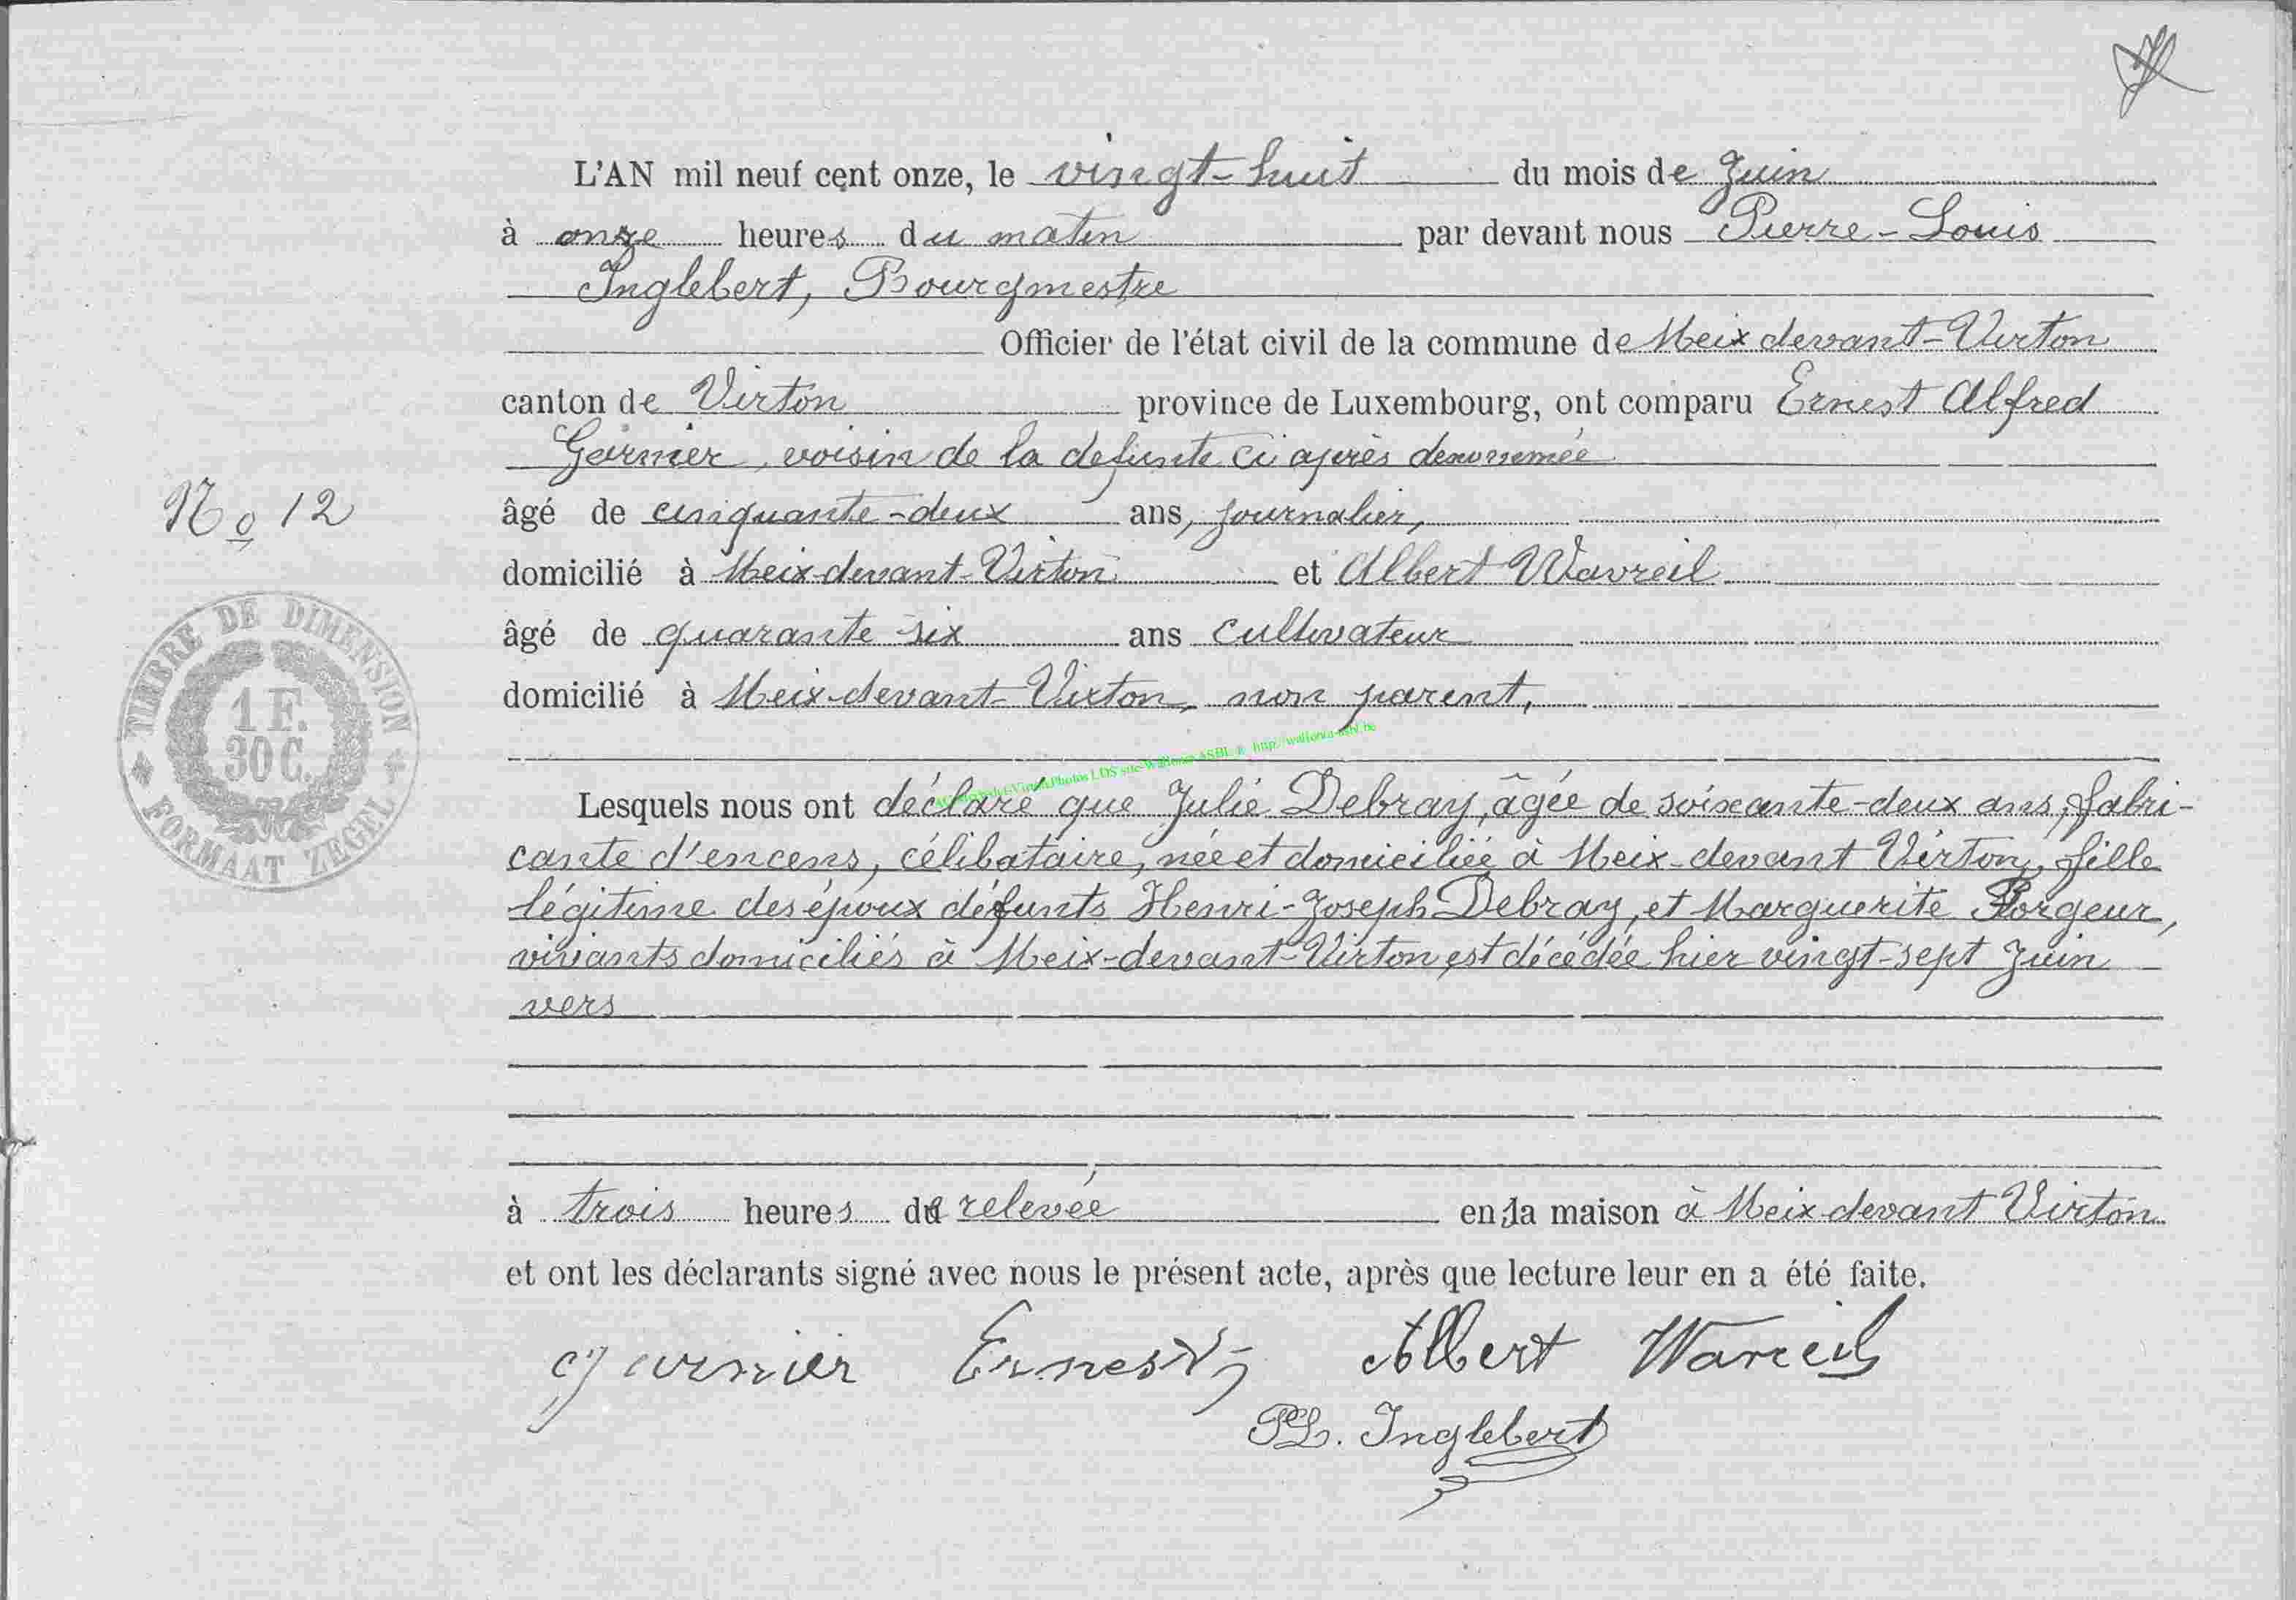 L'AN mil neuf cent onze, le vingt-huit du mois de Juin
à onze heures du matin par devant nous Pierre-Louis
Inglebert, Bourgmestre
Officier de l'état civil de la commune de Meix devant-Virton
canton de Virton province de Luxembourg, ont comparu Ernest Alfred
Garnier, voisin de la defunte ci après denommée
âgé de cinquante-deux ans, journalier,
N o 12
domicilié à Meix-devant-Virton et Albert Wavreil
âgé de quarante-six ans cultivateur
domicilié à Meix-devant-Virton, non parent,
TIMBRE DE DIMENSION
1 F.
30 C.
FORMAAT ZEGEL
Lesquels nous ont déclaré que Julie Debray, âgée de soixante-deux ans, fabri-
cante d'encens, célibataire, née et domiciliée à Meix-devant Virton, fille
légitime des époux défunts Henri-Joseph Debray, et Marguerite
vivants domiciliés à Meix-devant-Virton est décédée hier vingt-sept Juin
vers
à trois heures de relevée en la maison à Meix devant Virton
et ont les déclarants signé avec nous le présent acte, après que lecture leur en a été faite.
garnier Ernest Albert Wavreil
PL. Inglebert